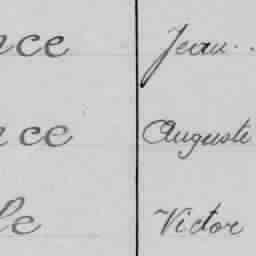 nce Jean
nce Auguste
le Victor